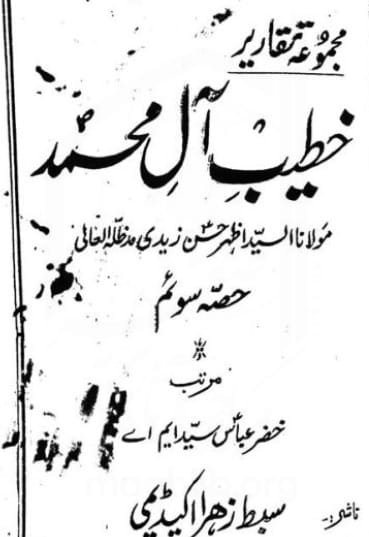 مجموعۂ تقاریر
خطیبِ آلِ محمدؐ
مولانا السیّد اظہر حسن زیدی مدظلہ العالی
حصّہ سوئم
مرتب
خضر عباس سیّد ایم اے
ناشر:۔ سبطِ زہرا اکیڈیمی